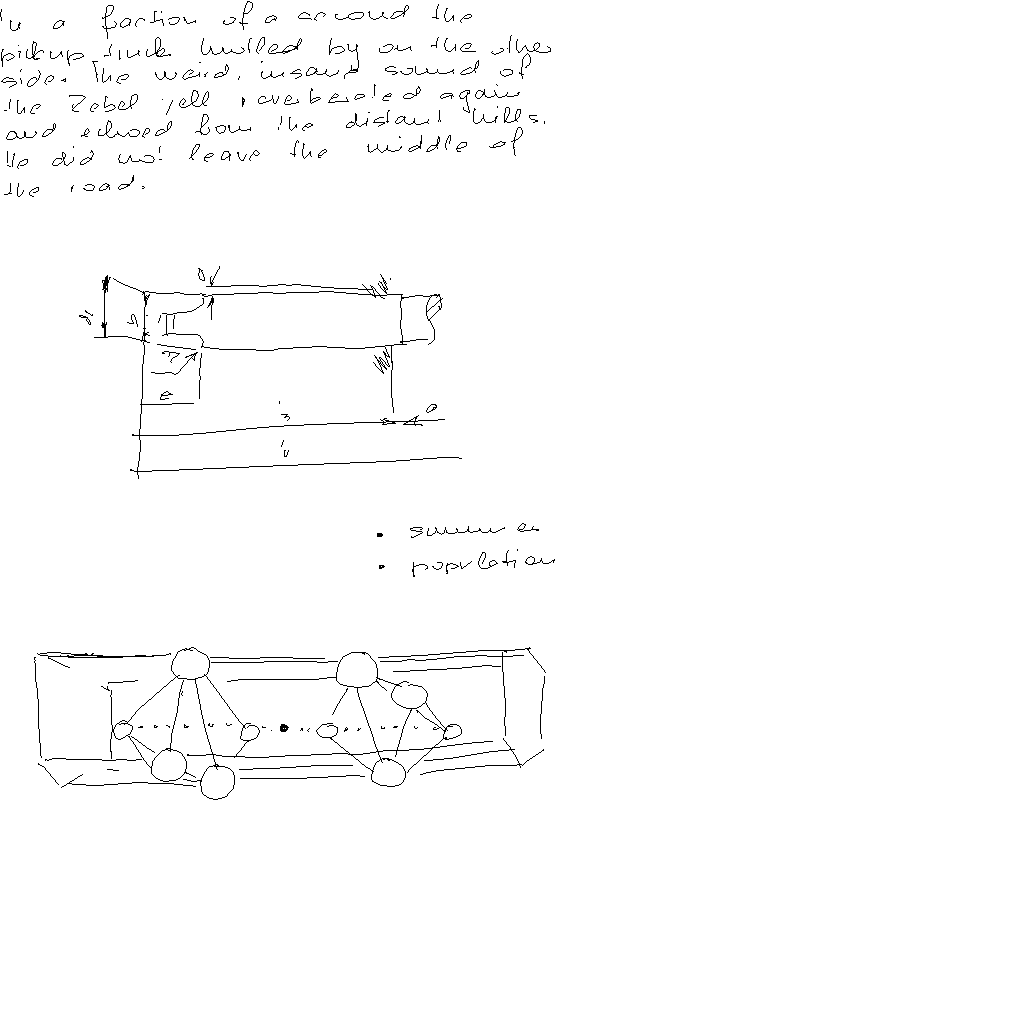 In a fraction of a second the
pickup truck hurtled by on the other
side. The weird, insane sound of
the Rebel yell reverberated again
and echoed from the distant hills.
He did not leave the middle of
the road.
summer
population